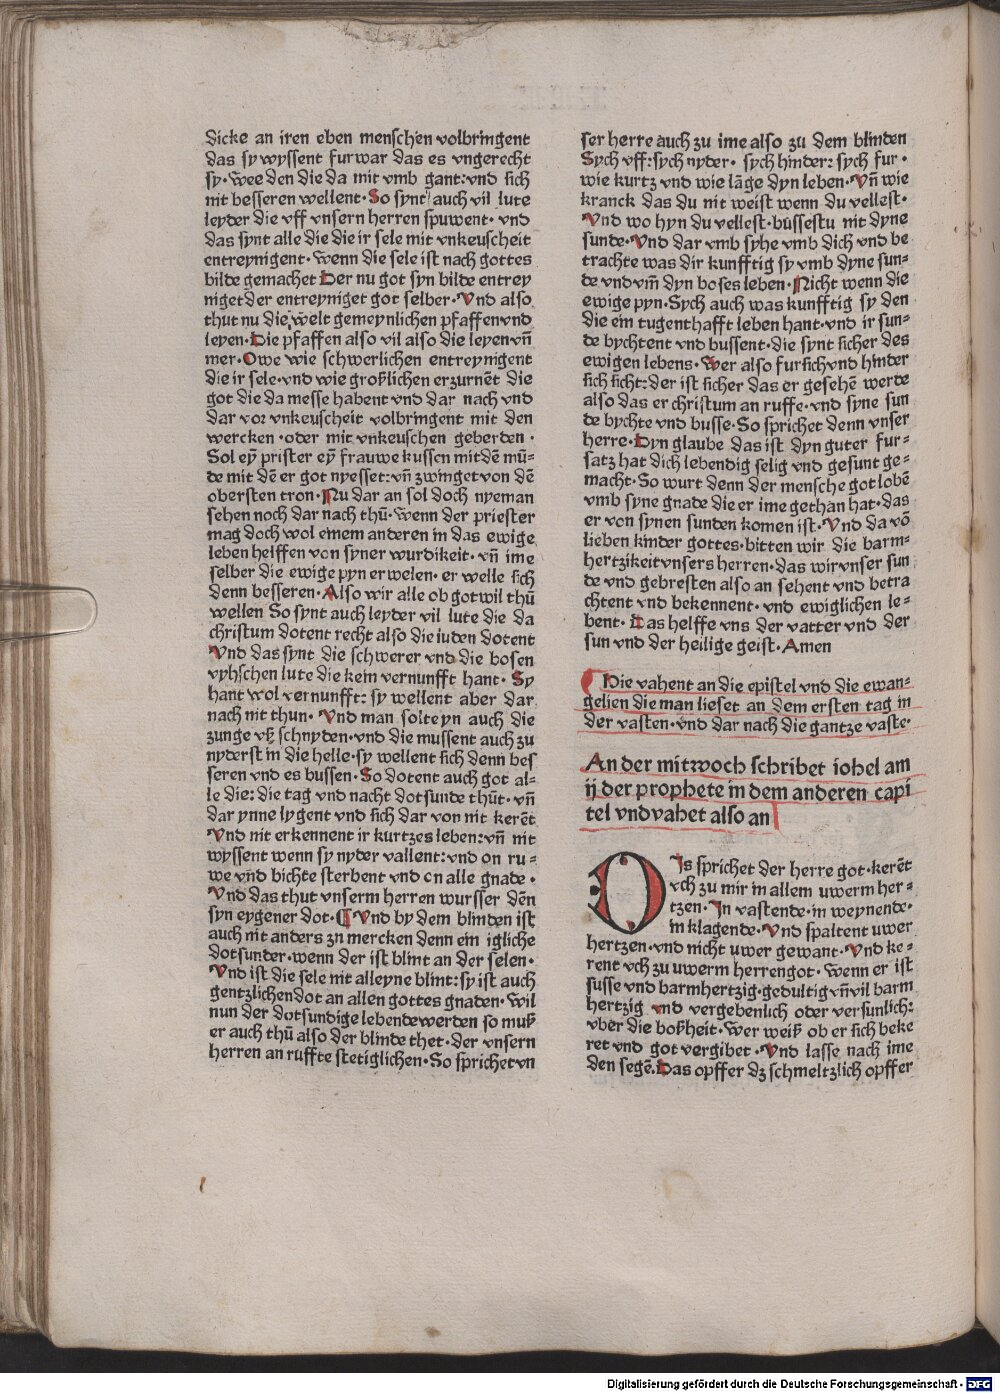 dicke an iren eben menschen volbringent
das sy wyssent furwar das es vngerecht
sy· wee den die da mit vmb gant: vnd sich
nit besseren wellent· So synt auch vil lute
leyder die vff vnsern herren spuwent· vnd
das synt alle die die ir sele mit vnkeuscheit
entreynigent· wenn die sele ist nach gottes
bilde gemachet Der nu got syn bilde entrey
niget der entreyniget got selber· Vnd also
thut nu die welt gemeynlichen pfaffen vnd
leyen· Die pfaffen also vil also die leyen vn̄
mer· Owe wie schwerlichen entreynigent
die ir sele· vnd wie groszlichen erzurnēt die
got die da messe habent vnd dar nach vnd
dar vor vnkeuscheit volbringent mit den
wercken· oder mit vnkeuschen geberden·
Sol eyn̄ prister eyn̄ frauwe kussen mit dē mū=
de mit dē er got nyesset: vn̄ zwinget von dē
obersten tron· Nu dar an sol doch nyeman
sehen noch dar nach thū· wenn der priester
mag doch wol einem anderen in das ewige
leben helffen von syner wurdikeit· vn̄ ime
selber die ewige pyn erwelen· er welle sich
denn besseren· Also wir alle ob got wil thū
wellen So synt auch leyder vil lute die da
christum dotent recht also die iuden dotent
Vnd das synt die schwerer vnd die bosen
vyhschen lute die kein vernunfft hant· Sy
hant wol vernunfft: sy wellent aber dar
nach nit thun· Vnd man solte yn auch die
zunge vsz schnyden· vnd die mussent auch zu
nyderst in die helle· sy wellent sich denn bes
seren vnd es bussen· So dotent auch got al=
le die: die tag vnd nacht dotsunde thūt· vn̄
dar ynne lygent vnd sich dar von nit kerēt
Vnd nit erkennent ir kurtzes leben: vn̄ nit
wyssent wenn sy nyder vallent: vnd on ru=
we vnd bichte sterbent vnd on alle gnade·
Vnd das thut vnserm herren wursser dēn
syn eygener dot· ¶ Vnd by dem blinden ist
auch nit anders zn mercken denn ein igliche
dotsunder· wenn der ist blint an der selen·
Vnd ist die sele nit alleyne blint: sy ist auch
gentzlichen dot an allen gottes gnaden· Wil
nun der dotsundige lebende werden so musz
er auch thū also der blinde thet· der vnsern
herren an ruffte stetiglichen· So sprichet vn
ser herre auch zu ime also zu dem blinden
Sych vff: sych nyder· sych hinder: sych fur·
wie kurtz vnd wie lāge dyn leben· Vn̄ wie
kranck das du nit weist wenn du vellest·
Vnd wo hyn du vellest· būssestu nit dyne
sunde· Vnd dar vmb syhe vmb dich vnd be
trachte was dir kunfftig sy vmb dyne sun=
de vnd vm̄ dyn boses leben· Nicht wenn die
ewige pyn· Sych auch was kunfftig sy den
die ein tugenthafft leben hant· vnd ir sun=
de bychtent vnd bussent· die synt sicher des
ewigen lebens· Wer also fur sich vnd hinder
sich sicht: der ist sicher das er gesehē werde
also das er christum an ruffe· vnd syne sun
de bychte vnd busse· So sprichet denn vnser
herre· Dyn glaube das ist dyn guter fur=
satz hat dich lebendig selig vnd gesunt ge=
macht· So wurt denn der mensche got lobē
vmb syne gnade die er ime gethan hat· das
er von synen sunden komen ist· Vnd da vō
lieben kinder gottes· bitten wir die barm=
hertzikeit vnsers herren· das wir vnser sun
de vnd gebresten also an sehent vnd betra
chtent vnd bekennent· vnd ewiglichen le=
bent· Das helffe vns der vatter vnd der
sun vnd der heilige geist· Amen
¶ Hie vahent an die epistel vnd die ewan=
gelien die man lieset an dem ersten tag in
der vasten· vnd dar nach die gantze vaste·
An der mitwoch schribet iohel am
ij der prophete in dem anderen capi
tel vnd vahet also an
DIs sprichet der herre got· kerēt
vch zu mir in allem uwerm her=
tzen· In vastende· in weynende·
in klagende· Vnd spaltent uwer
hertzen· vnd nicht uwer gewant· Vnd ke=
rent vch zu uwerm herren got· Wenn er ist
susse vnd barmhertzig· gedultig vn̄ vil barm
hertzig vnd vergebenlich oder versunlich:
vber die boszheit· Wer weisz ob er sich beke
ret vnd got vergibet· Vnd lasse nach ime
den segē. Das opffer dz schmeltzlich opffer
Digitalisierung gefördert durch die Deutsche Forschungsgemeinschaft - DFG